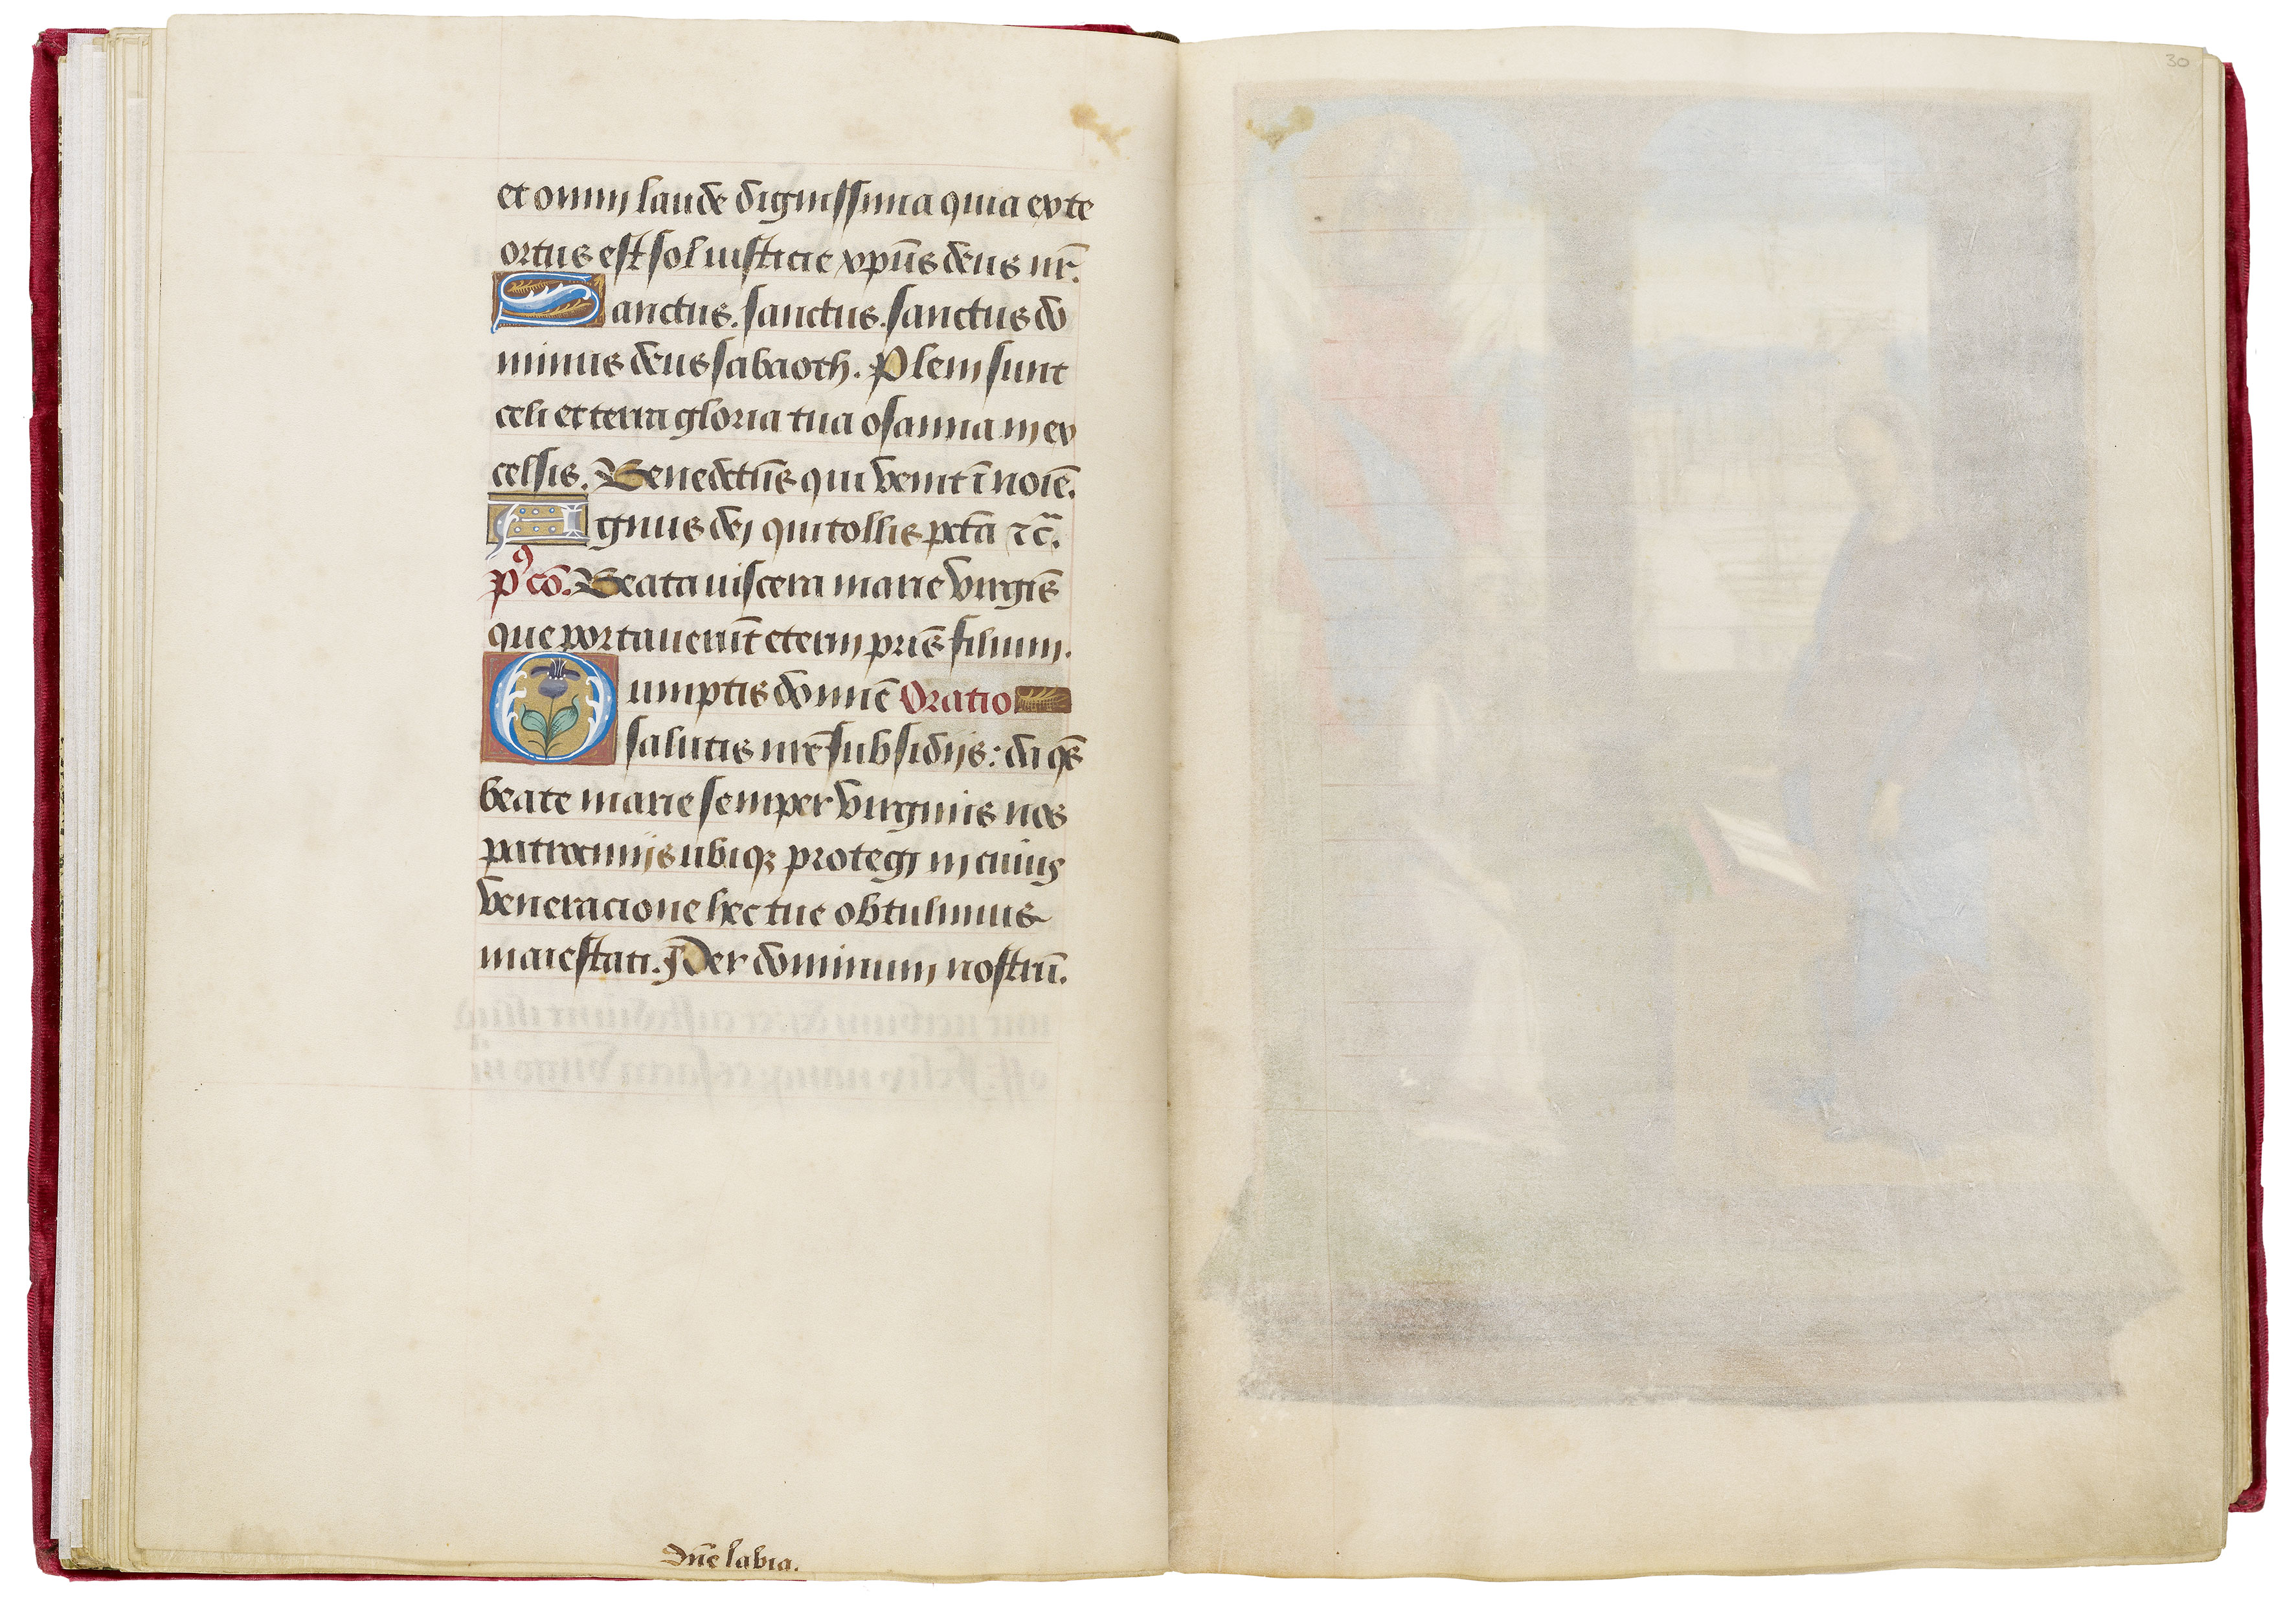 et omnj laude dignissima quia ex te
ortus est sol iusticie xpūs deus nr̄.
Sanctus. sanctus. sanctus do
minus deus sabaoth. Pleni sunt
celi et terra gloria tua osanna in ex
celsis. Benedctūs qui venit ī noīē.
Agnus dej qui tollis pctā ⁊c̄.
pꝰ cō. Beata uiscera marie virgīs
que portauerūt eternj prīs filium.
umptis domīe Oratio
salutis nrē subsidijs: da qs̄
beate marie semper virginis nos
patrocinijs ubiqꝫ protegj in cuius
veneracione hec tue obtulimus
maiestati. Per dominum nostrū.
Dn̄e labia.
30